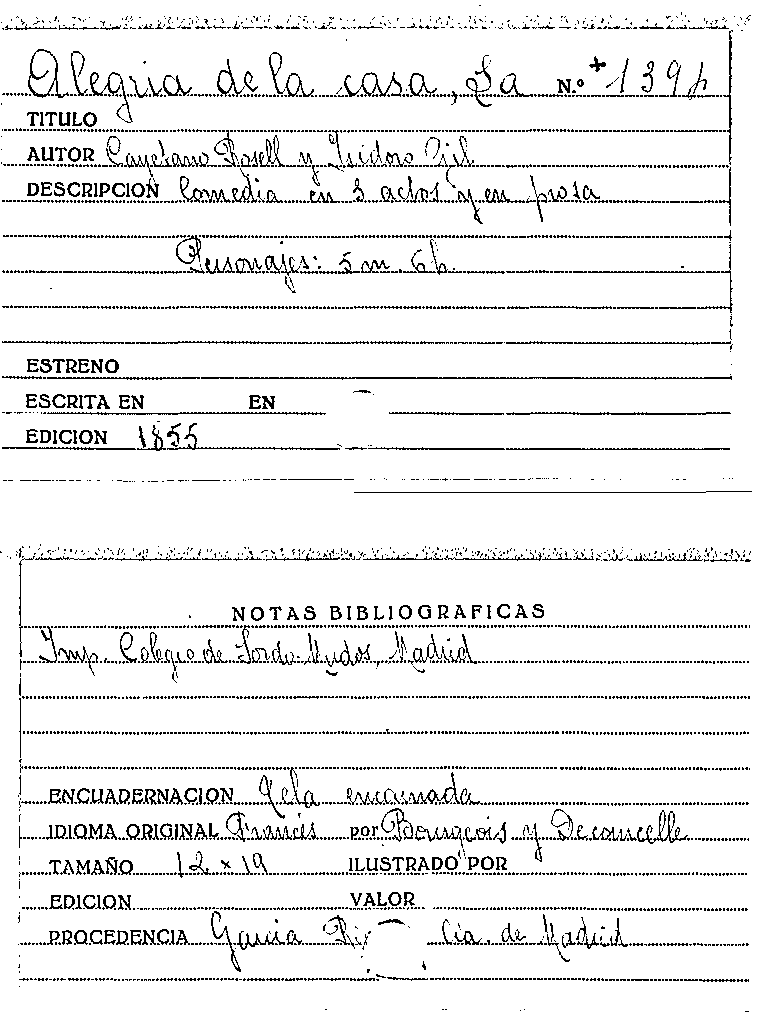 Alegria de la casa, La N.º + 139
TITULO
AUTOR Cayetano Rosell y Isidoro Gil
DESCRIPCION Comedia en 3 actos y en prosa
Personajes: 5 m. 6 h.
ESTRENO
ESCRITA EN EN
EDICION 1855
NOTAS BIBLIOGRAFICAS
Imp. Colegio de Sordo-Mudos, Madrid
ENCUADERNACION Tela encarnada
IDIOMA ORIGINAL Francés por Bourgeois y Decourcelle
TAMAÑO 12 x 19 ILUSTRADO POR
EDICION VALOR
PROCEDENCIA Garcia Cia. de Madrid